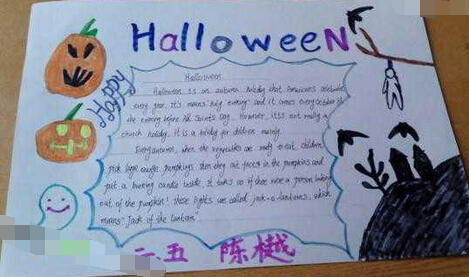 HalloweeN
Happy
Halloween
Halloween is an autumn holiday that Americans celebrate
every year. It's means "holy evening" and it comes every October 31
the evening before All Saints' Day. However, it's not really a
church holiday, it is a holiday for children mainly.
Every autumn, when the vegetables are ready to eat, children
pick large orange pumpkings. then they cut faces in the pumpkins and
put a burning candle inside. it looks as if there were a person looking
out of the pumpkin! these lights are called jack-o-lanterns, which
means "Jack of the lantern".
二.五 陈樾